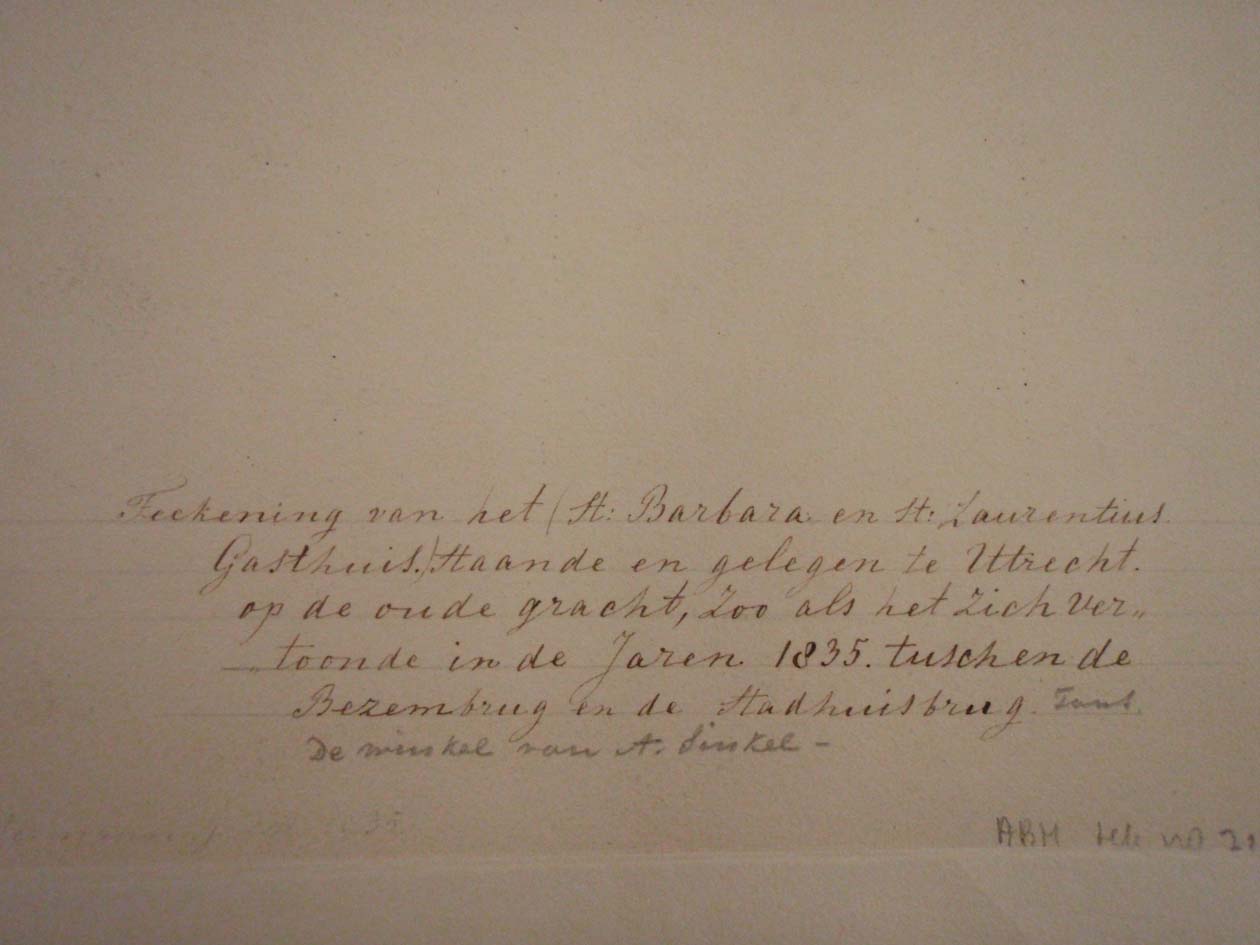 Teekening van het (St: Barbara en St: Laurentius
Gasthuis.) Staande en gelegen te Uttrecht.
op de oude gracht, Zoo als het Zich ver„
„toonde in de Jaren 1835. tuschen de
Bezembrug en de Stadhuisbrug.
De winkel van A. Sinkel –
1835
ABH tek no